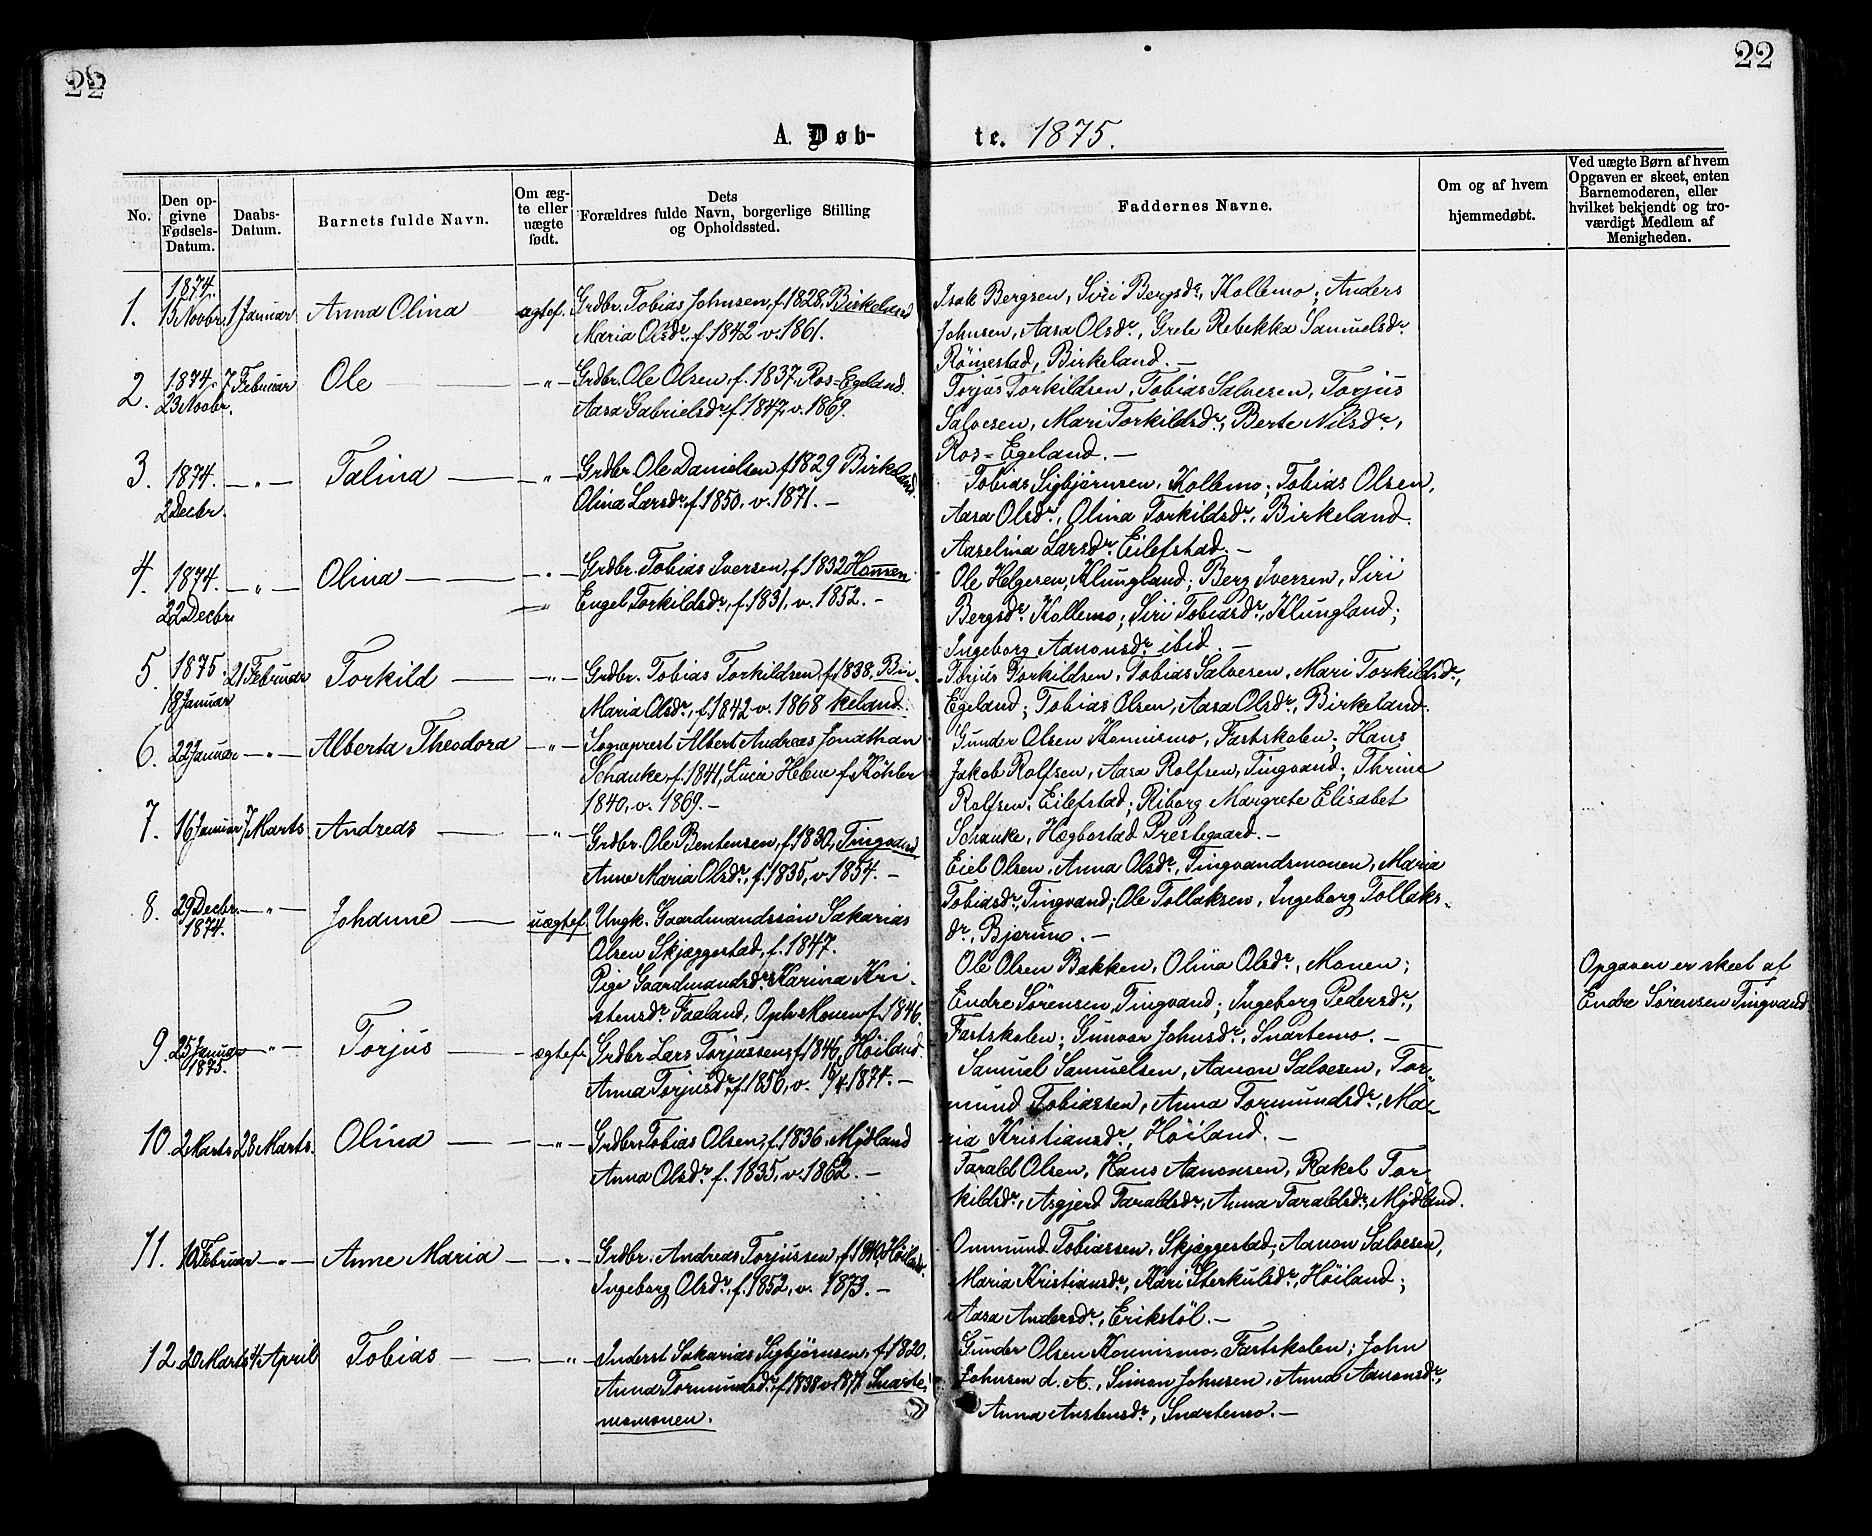 22
22
A. Døb-
te. 1875.
No.
Den op-
givne
Fødsels-
Datum.
Daabs-
Datum.
Barnets fulde Navn.
Om æg-
te eller
uægte
født.
Dets
Forældres fulde Navn, borgerlige Stilling
og Opholdssted.
Faddernes Navne.
Om og af hvem
hjemmedøbt.
Ved uægte Børn af hvem
Opgaven er skeet, enten
Barnemoderen, eller
hvilket bekjendt og tro-
værdigt Medlem af
Menigheden.
1.
1874.
15 Novbr.
1 Januar
Anna Olina
ægtef.
Grdbr. Tobias Johnsen, f. 1828, Birkeland
Maria Olsdr., f. 1842 v. 1861.
Isak Bergsen, Siri Bergsdr., Kollemo; Anders
Johnsen, Aasa Olsdr., Grete Rebekka Samuelsdr.
Römestad, Birkeland. —
2.
1874.
23 Novbr.
7 Februar
Ole
— " —
Grdbr. Ole Olsen, f. 1837, Ros-Egeland.
Aasa Gabrielsdr. f. 1847, v. 1869.
Torjus Torkildsen, Tobias Salvesen, Torjus
Salvesen, Mari Torkildsdr., Berte Nilsdr.,
Ros-Egeland. —
3.
1874.
2 Decbr.
— " —
Talina
— " —
Grdbr. Ole Danielsen f. 1829 Birkeland.
Olina Larsdr. f. 1850, v. 1871. —
Tobias Sigbjörnsen, Kollemo; Tobias Olsen,
Aasa Olsdr., Olina Torkildsdr., Birkeland.
Aaselina Larsdr. Eilefstad. —
4.
1874.
22 Decbr.
— " —
Olina
— " —
Grdbr. Tobias Iversen, f. 1832 Homen.
Engel Torkildsdr., f. 1831, v. 1852. —
Ole Helgesen, Klungland; Berg Iversen, Siri
Bergsdr. Kollemo; Siri Tobiasdr., Klungland;
Ingeborg Aanonsdr. ibid. —
5.
1875.
18 Januar
21 Februar
Torkild
— " —
Grdbr. Tobias Torkildsen, f. 1838, Bir-
Maria Olsdr., f. 1842 v. 1868 keland.
Torjus Torkildsen, Tobias Salvesen, Mari Torkildsdr.,
Egeland; Tobias Olsen, Aasa Olsdr., Birkeland.
6.
22 Januar
— " —
Alberta Theodora
— " —
Sogneprest Albert Andreas Jonathan
Schanke, f. 1841, Lucia Helene f. Köhler
1840, v. 1869. —
Gunder Olsen Konnismo, Fastskolen; Hans
Jakob Rolfsen, Aasa Rolfsen, Tingvand; Thrine
Rolfsen, Eilefstad; Riborg Margrete Elisabet
Schanke, Hægbostad Prestegaard. —
7.
16 Januar
7 Marts
Andreas
— " —
Grdbr. Ole Bentensen, f. 1830, Tingvand
Anne Maria Olsdr., f. 1835, v. 1854. —
Eiel Olsen, Anna Olsdr., Tingvandsmonen, Maria
Tobiasdr., Tingvand; Ole Tollaksen, Ingeborg Tollaks-
dr., Bjerumo. —
8.
29 Decbr.
1874.
— " —
Johanne
uægtef.
Ungk. Gaardmandssön Sakarias
Olsen Skjæggestad, f. 1847.
Pige Gaardmandsdr. Karina Kri-
stensdr. Faaland, Oph. Monen f. 1846.
Ole Olsen Bakken, Olina Olsdr., Monen;
Endre Sörensen, Tingvand; Ingeborg Pedersdr.,
Fastskolen; Gunvor Johnsdr., Snartemo. —
Opgaven er skeet af
Endre Sörensen Tingvand
9.
25 Januar
1875.
— " —
Torjus
ægtef.
Grdbr. Lars Torjussen, f. 1846, Höiland.
Anna Torjusdr. f. 1856, v. 15/4 1874. —
Samuel Samuelsen, Aanon Salvesen, Tor-
mund Tobiassen, Anna Tormundsdr., Ma-
ria Kristiansdr., Höiland. —
10.
2 Marts
28 Marts.
Olina
— " —
Grdbr. Tobias Olsen, f. 1836. Mydland
Anna Olsdr. f. 1835, v. 1862. —
Tarald Olsen, Hans Aanonsen, Rakel Tor-
kildsdr., Asgjerd Taraldsdr., Anna Taraldsdr., Mydland.
11.
10 Februar
— " —
Anne Maria
— " —
Grdbr. Andreas Torjussen, f. 1840, Höiland.
Ingeborg Olsdr., f. 1852, v. 1873. —
Onmund Tobiassen, Skjæggestad; Aanon Salvesen,
Maria Kristiansdr., Kari Sterkulsdr., Höiland;
Aasa Andersdr., Erikstöl. —
12.
20 Marts
4 April
Tobias
— " —
Inderst Sakarias Sigbjörnsen, f. 1820,
Anna Tormundsdr. f. 1838 v. 1871 Snarte-
momonen.
Gunder Olsen Konnismo, Fastskolen; John
Johnsen d. A., Simon Johnsen, Anna Aanonsdr.,
Anna Anstensdr., Snartemo. —